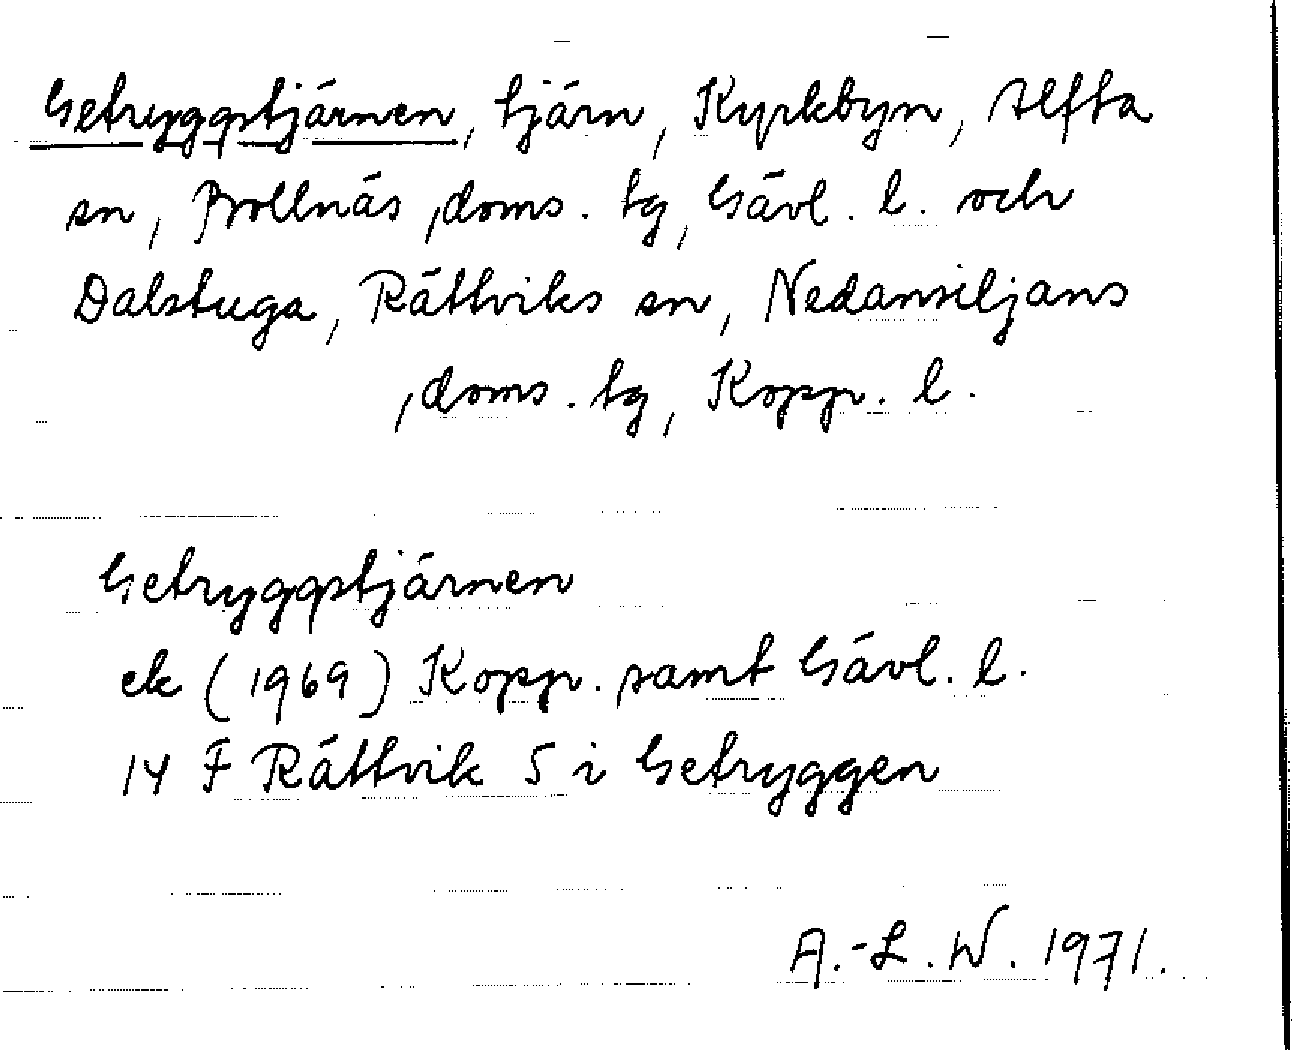 Getryggstjärnen, tjärn, Kyrkbyn, Alfta
sn, Bollnäs ,doms. tg, Gävl. l. och
Dalstuga, Rättviks sn, Nedansiljans
,doms. tg, Kopp. l.
Getryggstjärnen
ek (1969) Kopp. samt Gävl. l.
14 F Rättvik 5 i Getryggen
A.-L. W. 1971.